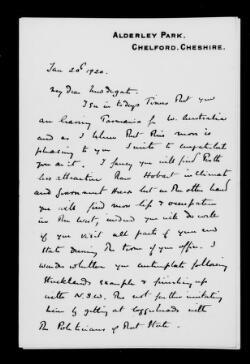 ALDERLEY PARK,
CHELFORD, CHESHIRE.
Jan 20th 1920.
My dear Newdegate.
I see in today's Times that you
are leaving Tasmania for W. Australia
and as I believe that this move is
pleasing to you I write to congratulate
you on it. I fancy you will find Perth
less attractive than Hobart in climate
and Government House but on the other hand
you will find more life & occupation
in the West, indeed you will do well
if you visit all parts of your new
State during the term of your office. I
wonder whether you contemplate following
Strickland's example & finishing up
with N.S.W. tho' not further imitating
him by getting at loggerheads with
the Politicians of that State.